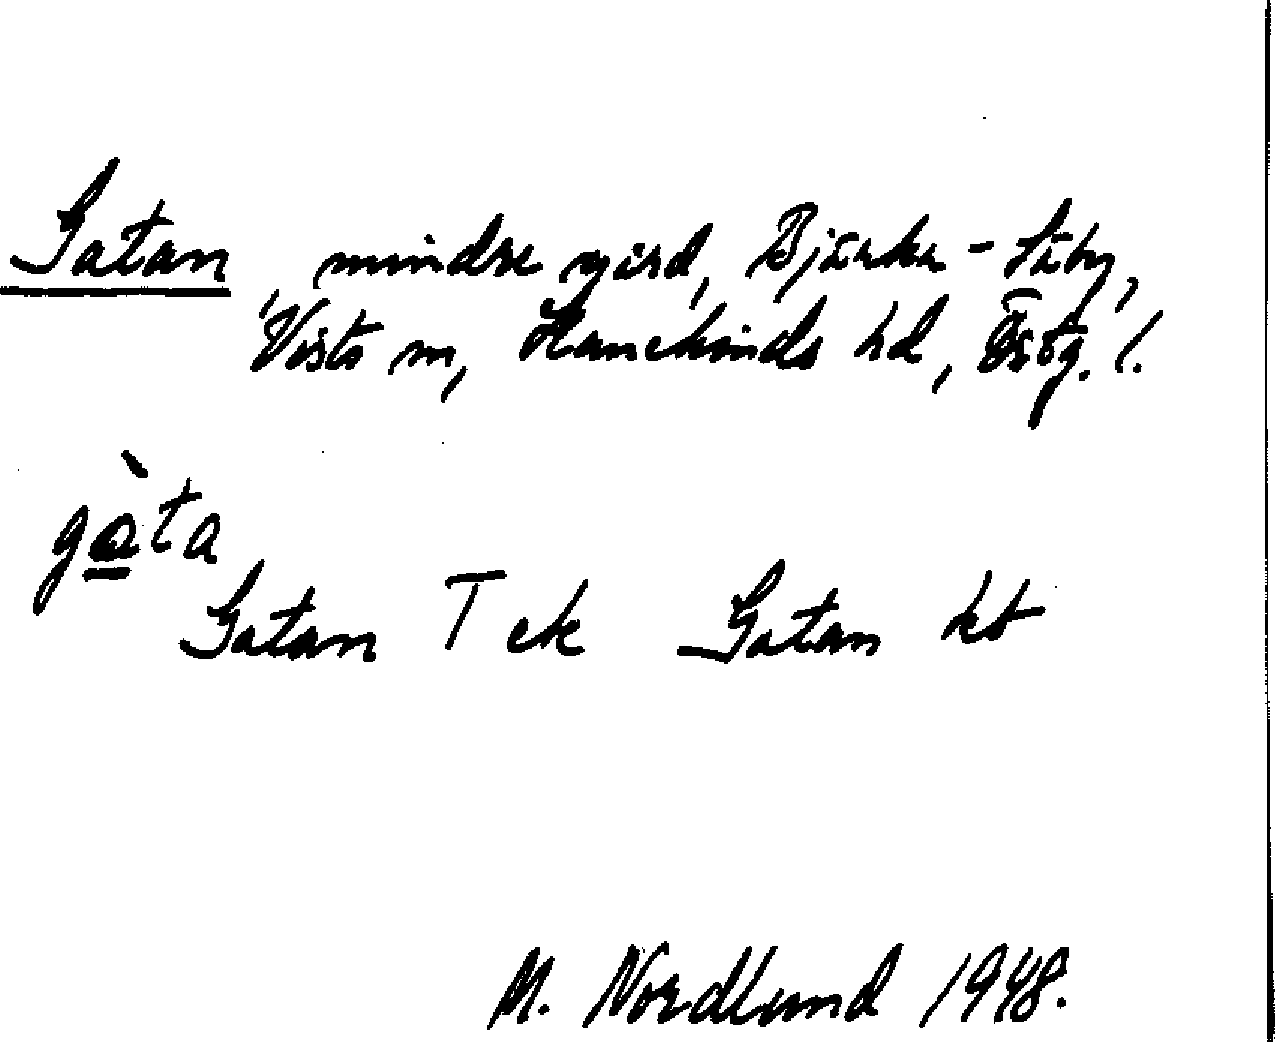 Gatan mindre gård, Bjärka-Säby,
Vists sn, Hanekinds hd, Östg. l.
gàta
Gatan T ek Gatan kb
M. Nordlund 1948.